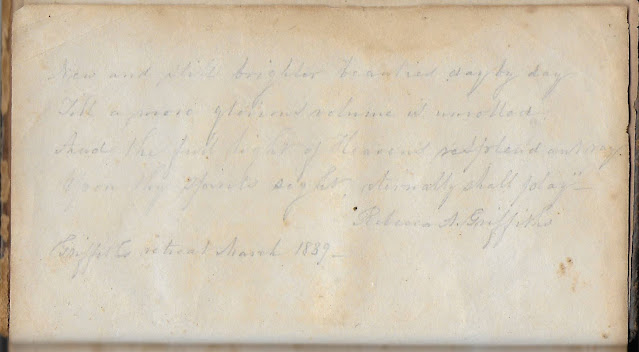 New and still brighter beauties day by day
Till a more glorious volume is unrolled;
And the full light of Heaven's resplendent ray.
Upon thy spirits sight eternally shall play"—
Rebecca A. Griffiths
Griffiths retreat March 1839—